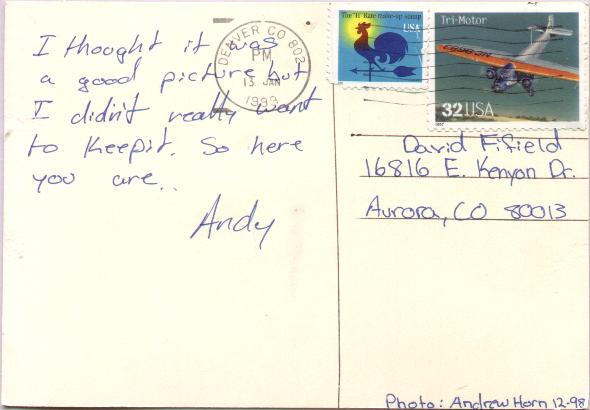 I thought it was
a good picture but
I didn't really want
to keep it. So here
you are..
Andy
DENVER CO 802
PM
13 JAN
1999
The "H" Rate make-up stamp
USA
Tri-Motor
32 USA
1997
David Fifield
16816 E. Kenyon Dr.
Aurora, CO 80013
Photo: Andrew Horn 12-98